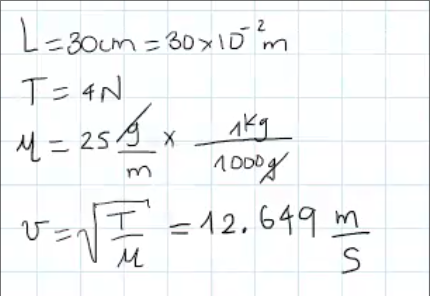 L = 30cm = 30×10⁻² m
T = 4N
μ = 25 g/m × 1Kg/1000g
v = √(T/μ) = 12.649 m/s